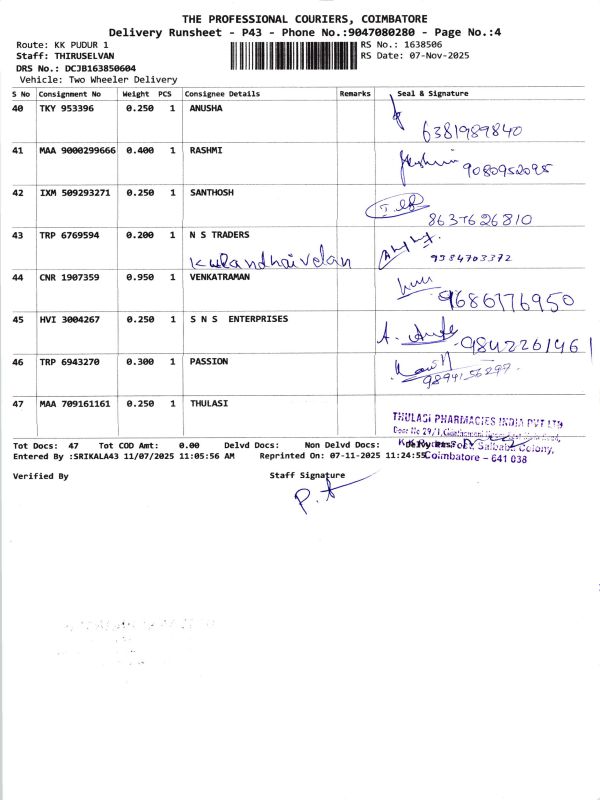 THE PROFESSIONAL COURIERS, COIMBATORE
Delivery Runsheet - P43 - Phone No.:9047080280 - Page No.:4
Route: KK PUDUR 1 RS No.: 1638506
Staff: THIRUSELVAN RS Date: 07-Nov-2025
DRS No.: DCJB163850604
Vehicle: Two Wheeler Delivery
S No Consignment No Weight PCS Consignee Details Remarks Seal & Signature
40 TKY 953396 0.250 1 ANUSHA
6381989840
41 MAA 9000299666 0.400 1 RASHMI
9080952095
42 IXM 509293271 0.250 1 SANTHOSH
8637626810
43 TRP 6769594 0.200 1 N S TRADERS
Kulandhaivelan 9384703372
44 CNR 1907359 0.950 1 VENKATRAMAN
9686176950
45 HVI 3004267 0.250 1 S N S ENTERPRISES
9842261461
46 TRP 6943270 0.300 1 PASSION
9894156297
47 MAA 709161161 0.250 1 THULASI
THULASI PHARMACIES INDIA PVT LTD
Saibaba Colony,
Coimbatore - 641 038
Tot Docs: 47 Tot COD Amt: 0.00 Delvd Docs: Non Delvd Docs:
Entered By :SRIKALA43 11/07/2025 11:05:56 AM Reprinted On: 07-11-2025 11:24:55
Verified By Staff Signature